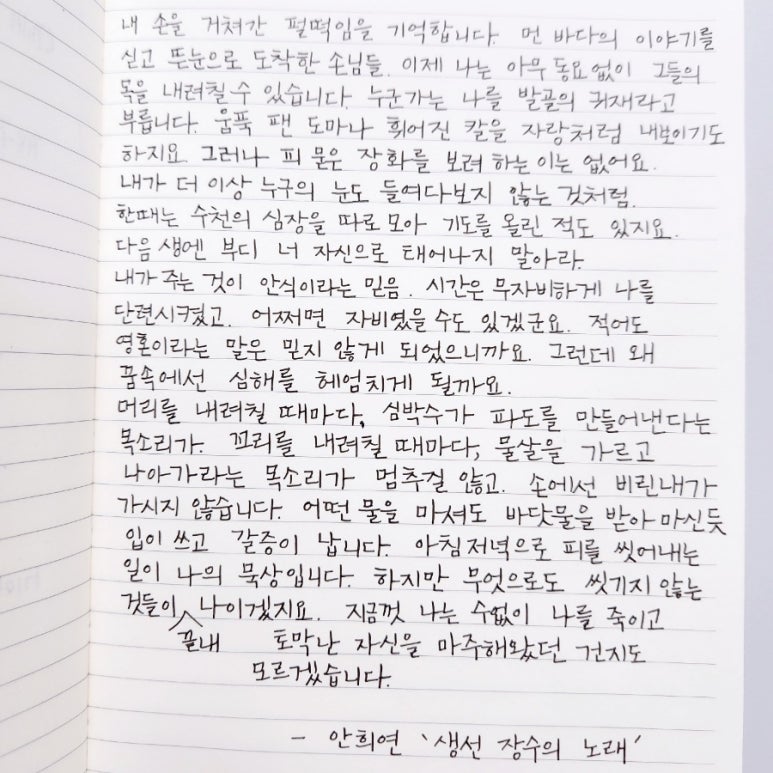 내 손을 거쳐간 펄떡임을 기억합니다. 먼 바다의 이야기를
싣고 뜬눈으로 도착한 손님들. 이제 나는 아무 동요 없이 그들의
목을 내려칠 수 있습니다. 누군가는 나를 발골의 귀재라고
부릅니다. 움푹 팬 도마나 휘어진 칼을 자랑처럼 내보이기도
하지요. 그러나 피 묻은 장화를 보려 하는 이는 없어요.
내가 더 이상 누구의 눈도 들여다보지 않는 것처럼.
한때는 수천의 심장을 따로 모아 기도를 올린 적도 있지요.
다음 생엔 부디 너 자신으로 태어나지 말아라.
내가 주는 것이 안식이라는 믿음. 시간은 무자비하게 나를
단련시켰고. 어쩌면 자비였을 수도 있겠군요. 적어도
영혼이라는 말은 믿지 않게 되었으니까요. 그런데 왜
꿈속에선 심해를 헤엄치게 될까요.
머리를 내려칠 때마다, 심박수가 파도를 만들어낸다는
목소리가. 꼬리를 내려칠 때마다, 물살을 가르고
나아가라는 목소리가 멈추질 않고. 손에선 비린내가
가시지 않습니다. 어떤 물을 마셔도 바닷물을 받아 마신 듯
입이 쓰고 갈증이 납니다. 아침저녁으로 피를 씻어내는
일이 나의 묵상입니다. 하지만 무엇으로도 씻기지 않는
것들이 나이겠지요. 지금껏 나는 수없이 나를 죽이고
끝내 토막난 자신을 마주해왔던 건지도
모르겠습니다.
- 안희연 '생선 장수의 노래'